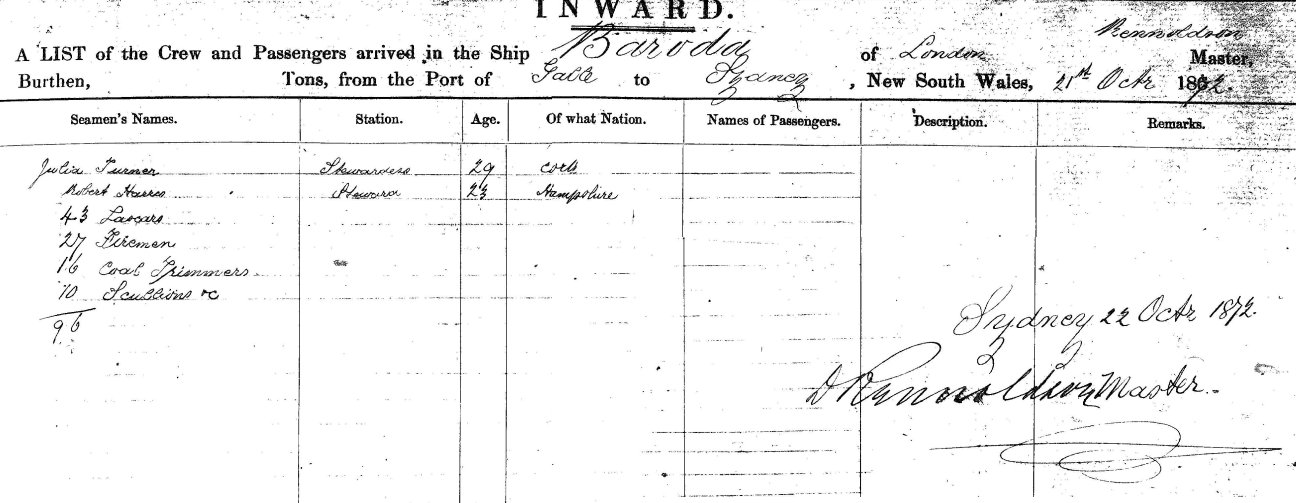 INWARD.
Rennoldson
A LIST of the Crew and Passengers arrived in the Ship Baroda of London Master,
Burthen, Tons, from the Port of Galle to Sydney, New South Wales, 21st Octr 1872.
Seamen's Names. Station. Age. Of what Nation. Names of Passengers. Description. Remarks.
Julia Turner Stewardess 29 Cork
Robert Harris Steward 23 Hampshire
43 Lascars
27 Firemen
16 Coal Trimmers
10 Scullions &c
96
Sydney 22 Octr 1872.
D Rennoldson Master.